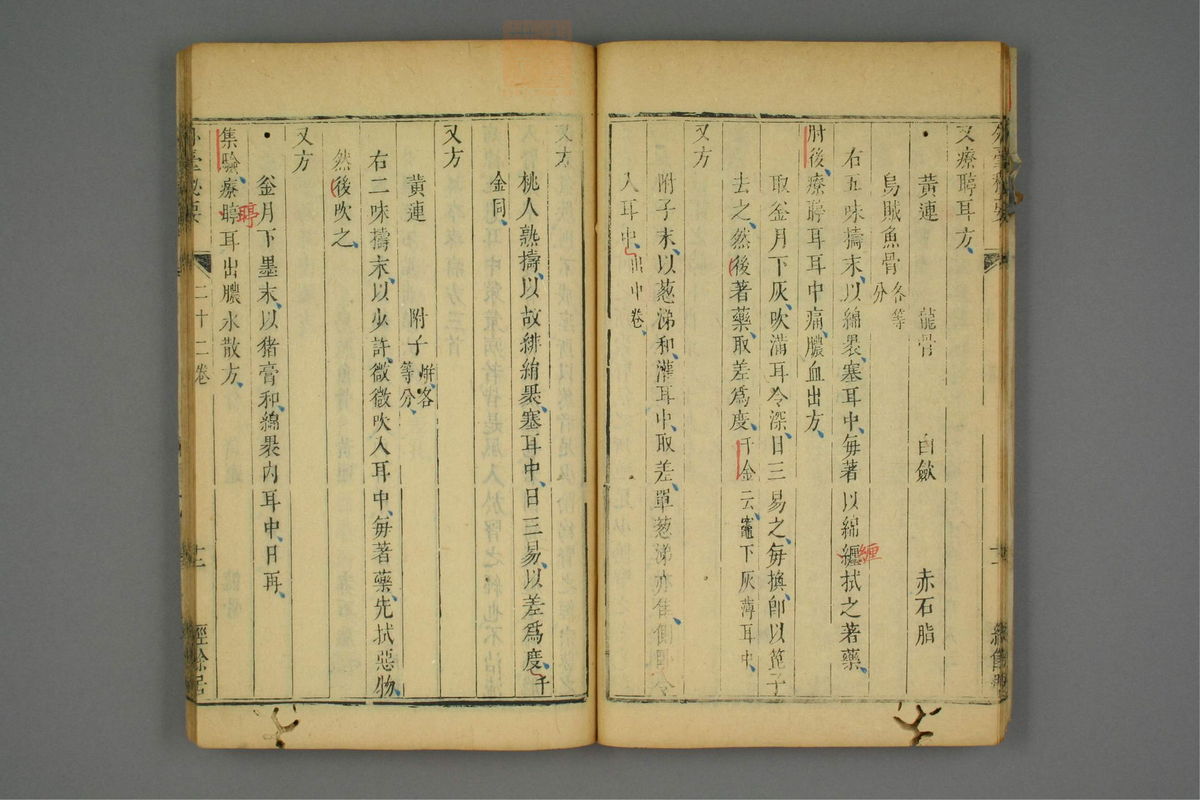 又療聤耳方
黃連 龍骨 白斂 赤石脂
烏賊魚骨各等分
右五味擣末以綿裹塞耳中每著以綿纏拭之著藥
纏
肘後療聤耳耳中痛膿血出方
取釜月下灰吹滿耳令深日三易之每換卽以箆子
去之然後著藥取差爲度千金云竈下灰薄耳中
又方
附子末以葱涕和灌耳中取差單葱涕亦佳側
入耳中出中卷
又方
桃人熟擣以故緋絹裹塞耳中日三易以差爲度千
金同
又方
黃連 附子炮各等分
右二味擣末以少許微微吹入耳中每著藥先拭惡物
然後吹之
又方
釜月下墨末以猪膏和綿裹內耳中日再
集驗療聤耳出膿水散方
聤
二十二卷
經餘居